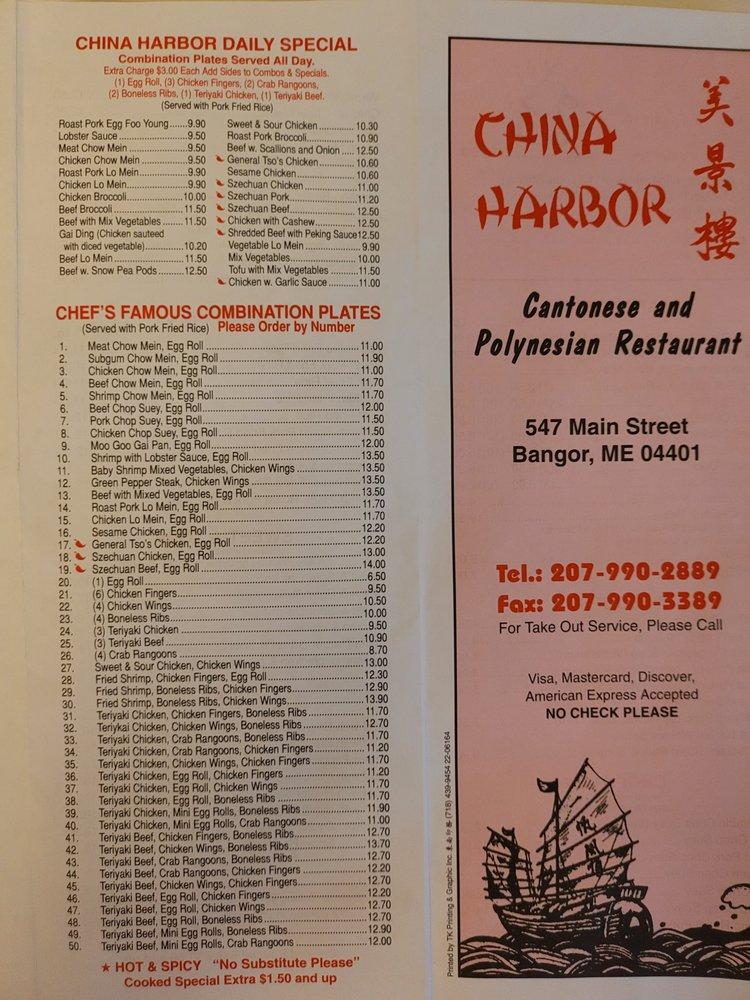 CHINA HARBOR DAILY SPECIAL
Combination Plates Served All Day.
Extra Charge $3.00 Each Add Sides to Combos & Specials.
(1) Egg Roll, (3) Chicken Fingers, (2) Crab Rangoons,
(2) Boneless Ribs, (1) Teriyaki Chicken, (1) Teriyaki Beef.
(Served with Pork Fried Rice)
Roast Pork Egg Foo Young.......9.90
Lobster Sauce..........9.50
Meat Chow Mein..........9.50
Chicken Chow Mein..........9.50
Roast Pork Lo Mein..........9.90
Chicken Lo Mein..........9.90
Chicken Broccoli..........10.00
Beef Broccoli..........11.50
Beef with Mix Vegetables..........11.50
Gai Ding (Chicken sauteed
with diced vegetable)..........10.20
Beef Lo Mein..........11.50
Beef w. Snow Pea Pods..........12.50
Sweet & Sour Chicken..........10.30
Roast Pork Broccoli..........10.90
Beef w. Scallions and Onion.....12.50
General Tso's Chicken..........10.60
Sesame Chicken..........10.60
Szechuan Chicken..........11.00
Szechuan Pork..........11.20
Szechuan Beef..........12.50
Chicken with Cashew..........12.50
Shredded Beef with Peking Sauce12.50
Vegetable Lo Mein..........9.90
Mix Vegetables..........10.00
Tofu with Mix Vegetables..........11.50
Chicken w. Garlic Sauce..........11.00
CHEF'S FAMOUS COMBINATION PLATES
(Served with Pork Fried Rice) Please Order by Number
1. Meat Chow Mein, Egg Roll..........11.00
2. Subgum Chow Mein, Egg Roll..........11.90
3. Chicken Chow Mein, Egg Roll..........11.00
4. Beef Chow Mein, Egg Roll..........11.70
5. Shrimp Chow Mein, Egg Roll..........11.70
6. Beef Chop Suey, Egg Roll..........12.00
7. Pork Chop Suey, Egg Roll..........11.50
8. Chicken Chop Suey, Egg Roll..........11.50
9. Moo Goo Gai Pan, Egg Roll..........12.00
10. Shrimp with Lobster Sauce, Egg Roll..........13.50
11. Baby Shrimp Mixed Vegetables, Chicken Wings..........13.50
12. Green Pepper Steak, Chicken Wings..........13.50
13. Beef with Mixed Vegetables, Egg Roll..........13.50
14. Roast Pork Lo Mein, Egg Roll..........11.70
15. Chicken Lo Mein, Egg Roll..........11.70
16. Sesame Chicken, Egg Roll..........12.20
17. General Tso's Chicken, Egg Roll..........12.20
18. Szechuan Chicken, Egg Roll..........13.00
19. Szechuan Beef, Egg Roll..........14.00
20. (1) Egg Roll..........6.50
21. (6) Chicken Fingers..........9.50
22. (4) Chicken Wings..........10.50
23. (4) Boneless Ribs..........10.00
24. (3) Teriyaki Chicken..........9.50
25. (3) Teriyaki Beef..........10.90
26. (4) Crab Rangoons..........8.70
27. Sweet & Sour Chicken, Chicken Wings..........13.00
28. Fried Shrimp, Chicken Fingers, Egg Roll..........12.30
29. Fried Shrimp, Boneless Ribs, Chicken Fingers..........12.90
30. Fried Shrimp, Boneless Ribs, Chicken Wings..........13.90
31. Teriyaki Chicken, Chicken Fingers, Boneless Ribs..........11.70
32. Teriykai Chicken, Chicken Wings, Boneless Ribs..........12.70
33. Teriyaki Chicken, Crab Rangoons, Boneless Ribs..........11.70
34. Teriyaki Chicken, Crab Rangoons, Chicken Fingers..........11.20
35. Teriyaki Chicken, Chicken Wings, Chicken Fingers..........11.70
36. Teriyaki Chicken, Egg Roll, Chicken Fingers..........11.20
37. Teriyaki Chicken, Egg Roll, Chicken Wings..........11.70
38. Teriyaki Chicken, Egg Roll, Boneless Ribs..........11.70
39. Teriyaki Chicken, Mini Egg Rolls, Boneless Ribs..........11.90
40. Teriyaki Chicken, Mini Egg Rolls, Crab Rangoons..........11.00
41. Teriyaki Beef, Chicken Fingers, Boneless Ribs..........12.70
42. Teriyaki Beef, Chicken Wings, Boneless Ribs..........13.70
43. Teriyaki Beef, Crab Rangoons, Boneless Ribs..........12.70
44. Teriyaki Beef, Crab Rangoons, Chicken Fingers..........12.20
45. Teriyaki Beef, Chicken Wings, Chicken Fingers..........12.70
46. Teriyaki Beef, Egg Roll, Chicken Fingers..........12.20
47. Teriyaki Beef, Egg Roll, Chicken Wings..........12.70
48. Teriyaki Beef, Egg Roll, Boneless Ribs..........12.70
49. Teriyaki Beef, Mini Egg Rolls, Boneless Ribs..........12.90
50. Teriyaki Beef, Mini Egg Rolls, Crab Rangoons..........12.00
★ HOT & SPICY "No Substitute Please"
Cooked Special Extra $1.50 and up
CHINA
HARBOR
美景樓
Cantonese and
Polynesian Restaurant
547 Main Street
Bangor, ME 04401
Tel.: 207-990-2889
Fax: 207-990-3389
For Take Out Service, Please Call
Visa, Mastercard, Discover,
American Express Accepted
NO CHECK PLEASE
Printed by TK Printing & Graphic Inc. (718) 439-9454 22-06164